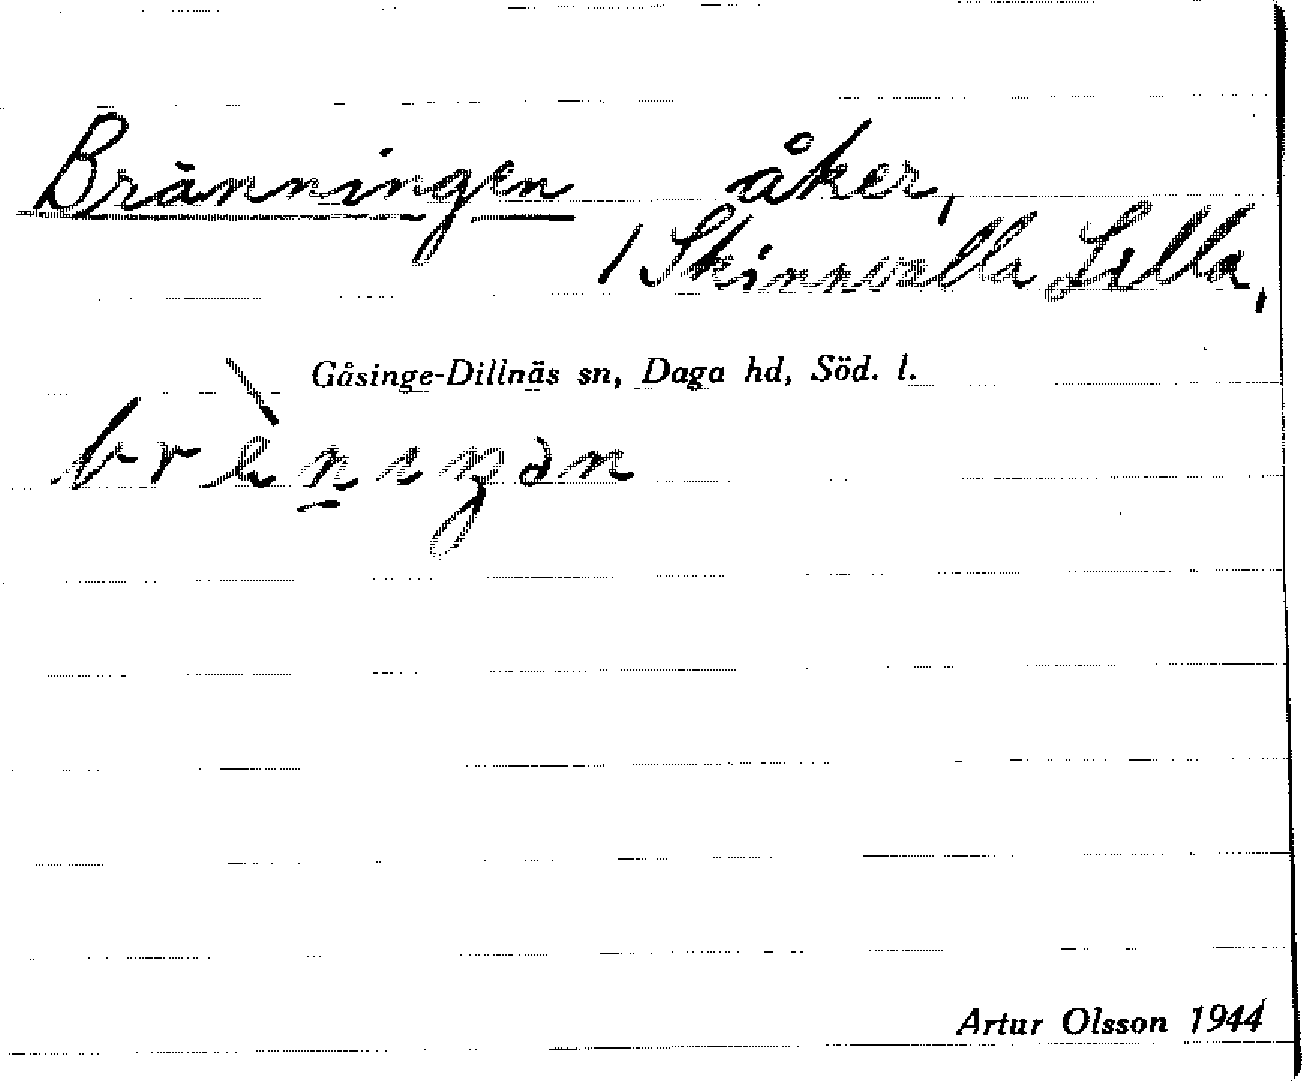 Bränningen åker,
/ Skinnvalla Lilla,
Gåsinge-Dillnäs sn, Daga hd, Söd. l.
brèn̲ıŋən
Artur Olsson 1944